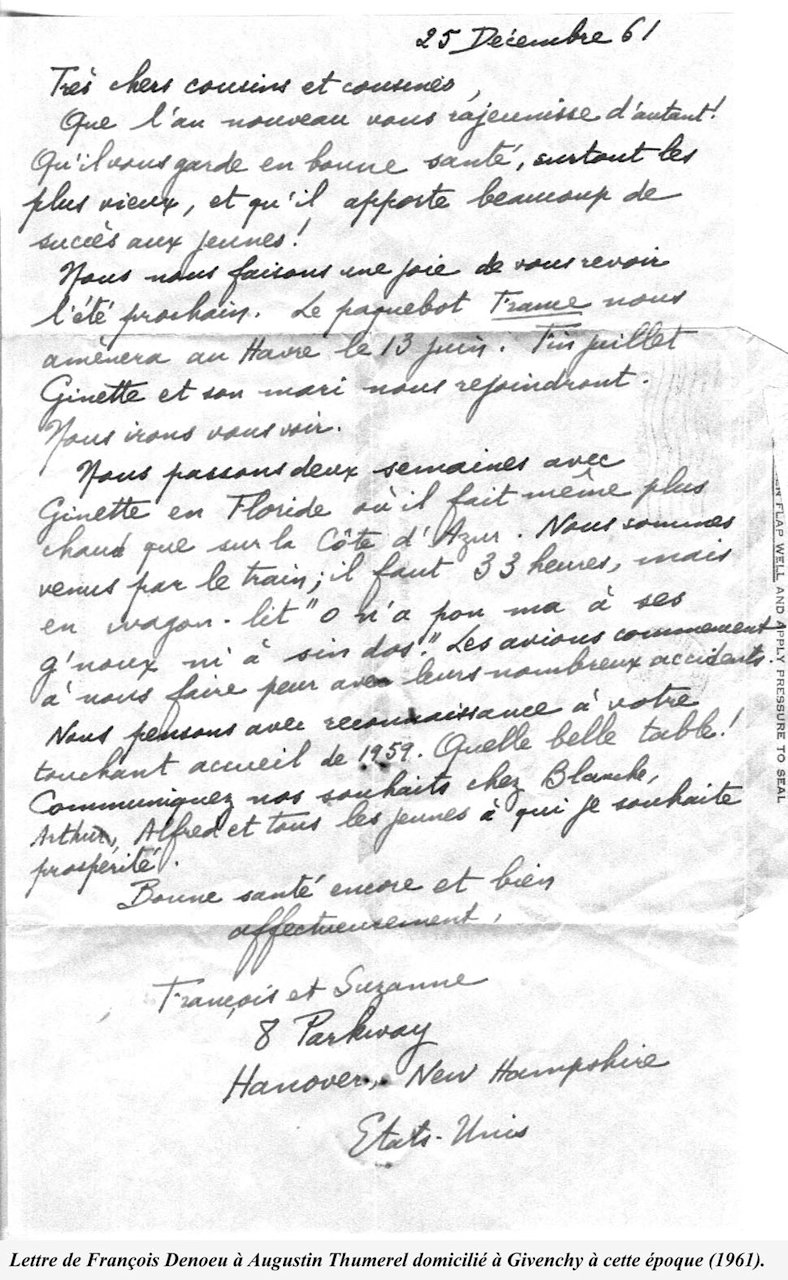 25 Décembre 61
Très chers cousins et cousines,
Que l'an nouveau vous rajeunisse d'autant!
Qu'il vous garde en bonne santé, surtout les
plus vieux, et qu'il apporte beaucoup de
succès aux jeunes!
Nous nous faisons une joie de vous revoir
l'été prochain. Le paquebot France nous
amènera au Havre le 13 juin. Fin juillet
Ginette et son mari nous rejoindront.
Nous irons vous voir.
Nous passons deux semaines avec
Ginette en Floride où il fait même plus
chaud que sur la Côte d'Azur. Nous sommes
venus par le train; il faut 33 heures, mais
en wagon-lit "o n'a pon ma à ses
g'noux ni à sin dos!" Les avions commencent
à nous faire peur avec leurs nombreux accidents.
Nous pensons avec reconnaissance à votre
touchant accueil de 1959. Quelle belle table!
Communiquez nos souhaits chez Blanche,
Arthur, Alfred et tous les jeunes à qui je souhaite
prospérité.
Bonne santé encore et bien
affectueusement,
François et Suzanne
8 Parkway
Hanover, New Hampshire
Etats-Unis
FLAP WELL AND APPLY PRESSURE TO SEAL
Lettre de François Denoeu à Augustin Thumerel domicilié à Givenchy à cette époque (1961).